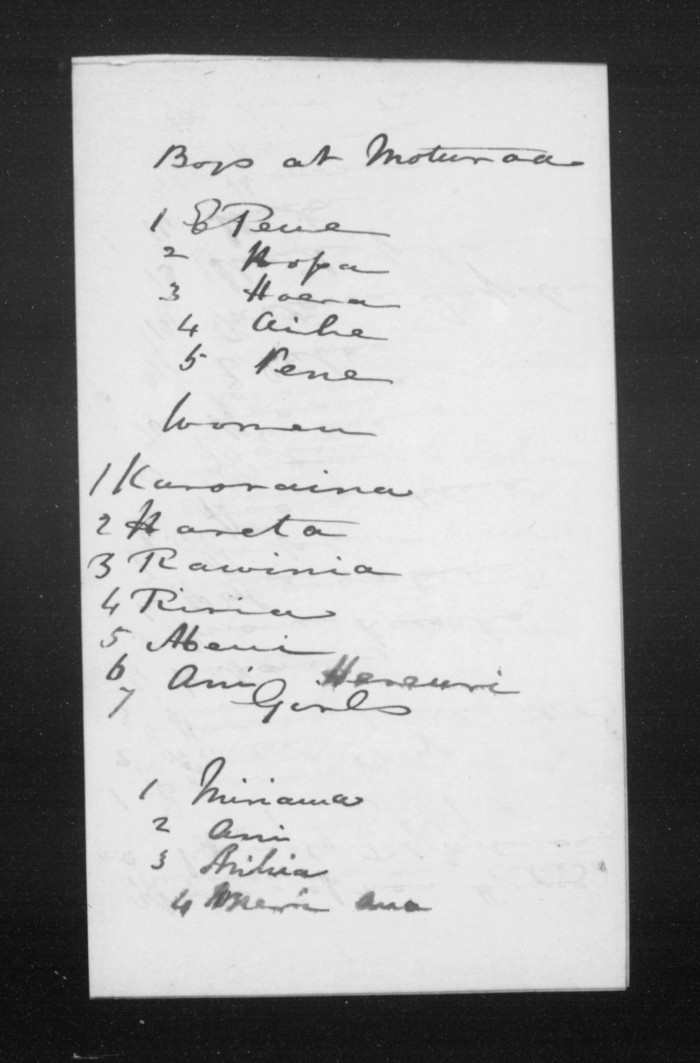 Boys at Moturoa
1 E Pene
2 Ropa
3 Hoera
4 Aihe
5 Pene
Women
1 Karoraina
2 Hareta
3 Rawinia
4 Riria
5
6 Ani
7 Girls
1 Miriama
2 Ani
3
4 Ana